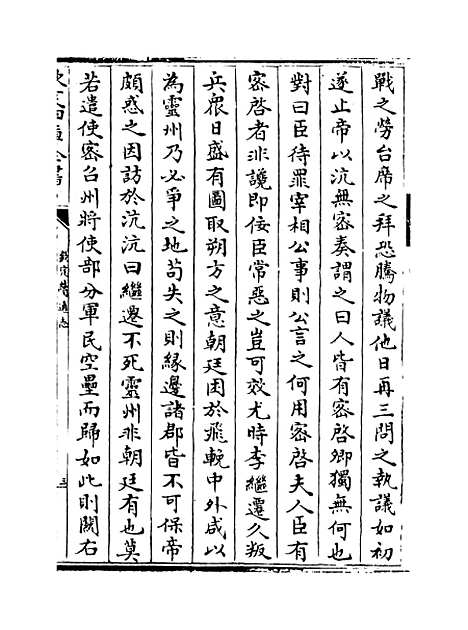 戰之勞台席之拜恐騰物議他日再三問之執議如初
遂止帝以沆無密奏謂之曰人皆有密啓卿獨無何也
對曰臣待罪宰相公事則公言之何用密啓夫人臣有
密啓者非讒即佞臣常惡之豈可效尤時李繼遷久叛
兵眾日盛有圖取朔方之意朝廷困於飛輓中外咸以
為靈州乃必爭之地苟失之則緣邊諸郡皆不可保帝
頗惑之因訪於沆沆曰繼遷不死靈州非朝廷有也莫
若遣使密召州將使部分軍民空壘而歸如此則關右
通志
三